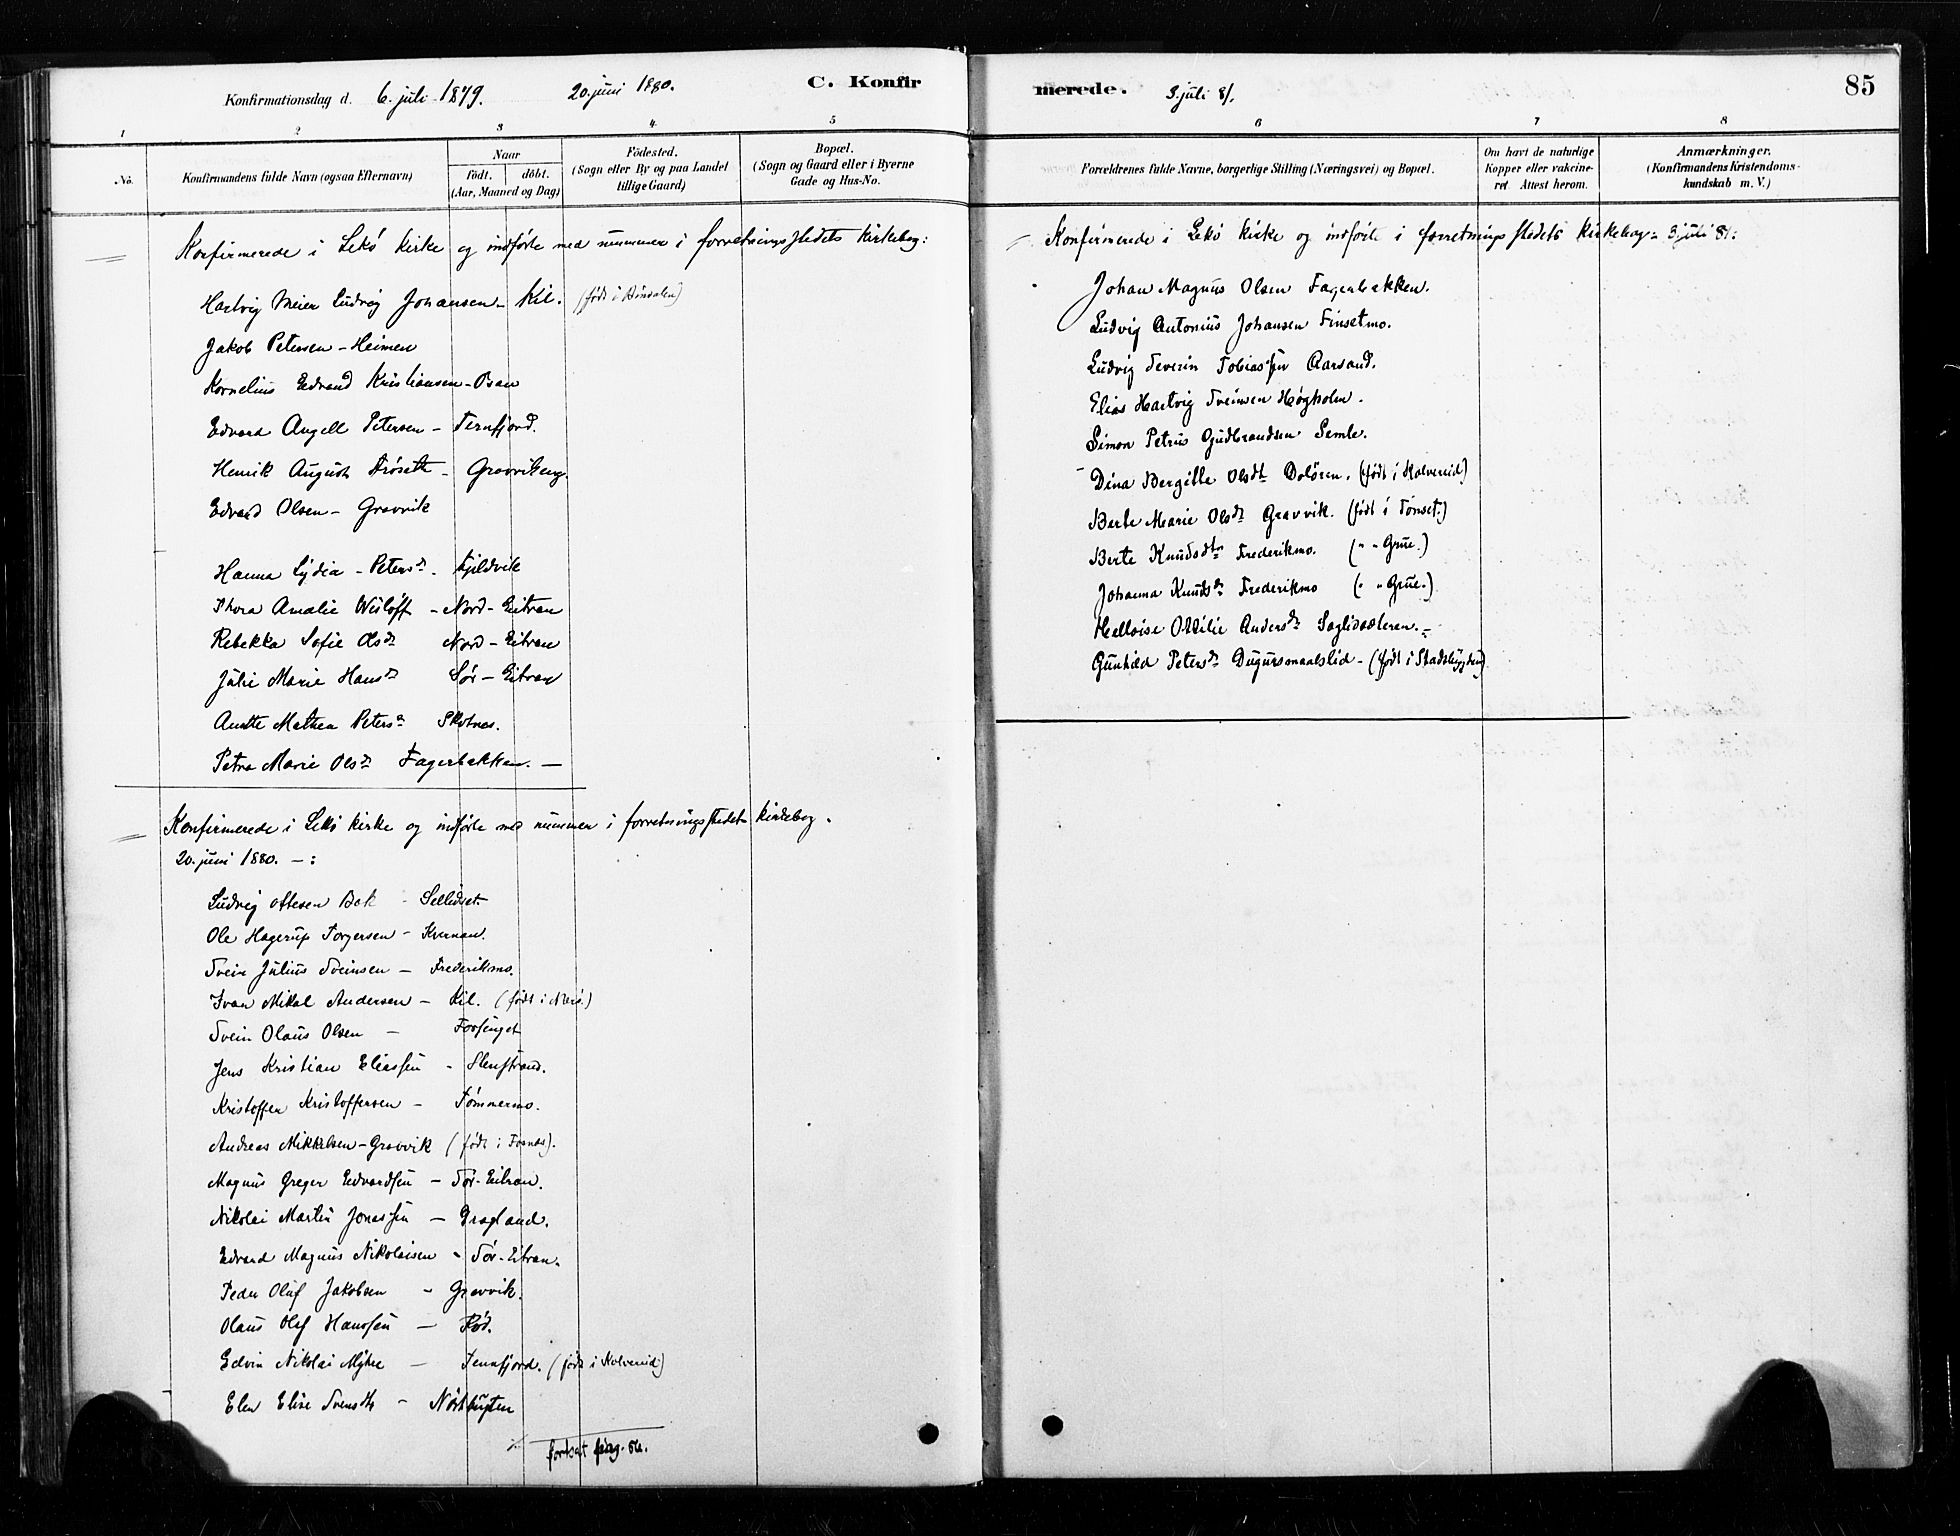 C. Konfirmerede.
85
Konfirmationsdag d. 6. juli 1879. 20. juni 1880. 3. juli 81.
1 2 3 4. 5 6 7 8
No.
Konfirmandens fulde Navn (ogsaa Efternavn)
Naar
født. døbt.
(Aar, Maaned og Dag)
Fødested.
(Sogn eller By og paa Landet
tillige Gaard)
Bopæl.
(Sogn og Gaard eller i Byerne
Gade og Hus-No.
Forældrenes fulde Navne, borgerlige Stilling (Næringsvei) og Bopæl.
Om havt de naturlige
Kopper eller vakcine-
ret. Attest herom.
Anmærkninger.
(Konfirmandens Kristendoms-
kundskab m. V.)
Konfirmerede i Lekø kirke og indførte med nummer i forretningsstedets kirkebog:
Hartvig Meier Ludvig Johansen - Kil. (født i
Jakob Petersen - Heimen
Kornelius Edvard Kristiansen - Osan
Edvard Angell Petersen - Tennfjord.
Henrik August Frøseth - Gravvikeng.
Edvard Olsen - Gravvik
Hanna Lydia - Petersdr. Kjeldvik
Thora Amalie Wisløff - Nord-Eitran
Rebekka Sofie Olsdr Nord-Eitran
Julie Marie Hansdr Sør-Eitran
Anette Mathea Petersdr Skotnes.
Petra Marie Olsdr Fagerbakken. -
Konfirmerede i Lekø kirke og indførte med nummer i forretningsstedets kirkebog.
20. juni 1880. - :
Ludvig Ottesen Bok - Sellidset
Ole Hagerup Torgersen - Kvernan.
Svein Julius Sveinsen - Frederikmo.
Ivan Mikal Andersen - Kil. (født i Nærø.)
Svein Olaus Olsen - Forsenget
Jens Kristian Eliassen - Stenstrand.
Kristoffer Kristoffersen - Tømmermo.
Andreas Mikkelsen - Gravvik (født i Fosnæs).
Magnus Greger Edvardsen - Sør-Eitran.
Nikolai Martin Jonassen - Dragland.
Edvard Magnus Nikolaisen - Sør-Eitran.
Peder Oluf Jakobsen - Gravvik.
Olaus Olaf Hanssen - Rød.
Edvin Nikolai Myhre - Tennfjord. (født i Kolvereid)
Elen Elise Svensdtr - Nordbugten
fortsat pag. 86.
Konfirmerede i Lekø kirke og indførte i forretningsstedets kirkebog - 3. juli 81:
Johan Magnus Olsen Fagerbakken.
Ludvig Antonius Johansen Finsetmo.
Ludvig Severin Tobiassen Aarsand.
Elias Hartvig Sveinsen Høgholm.
Simon Petrus Gudbrandsen Semle.
Dina Bergitte Olsdt Doløren. (født i Kolvereid)
Berte Marie Olsdr Gravvik. (født i Tønset.)
Berte Knudsdtr Frederikmo. (" " Grue.)
Johanna Knudsdr Frederikmo (" " Grue.)
Helloise Ottilie Andersdr -
Gunhild Petersdr Dugursmaalslid - (født i Stadsbygden)